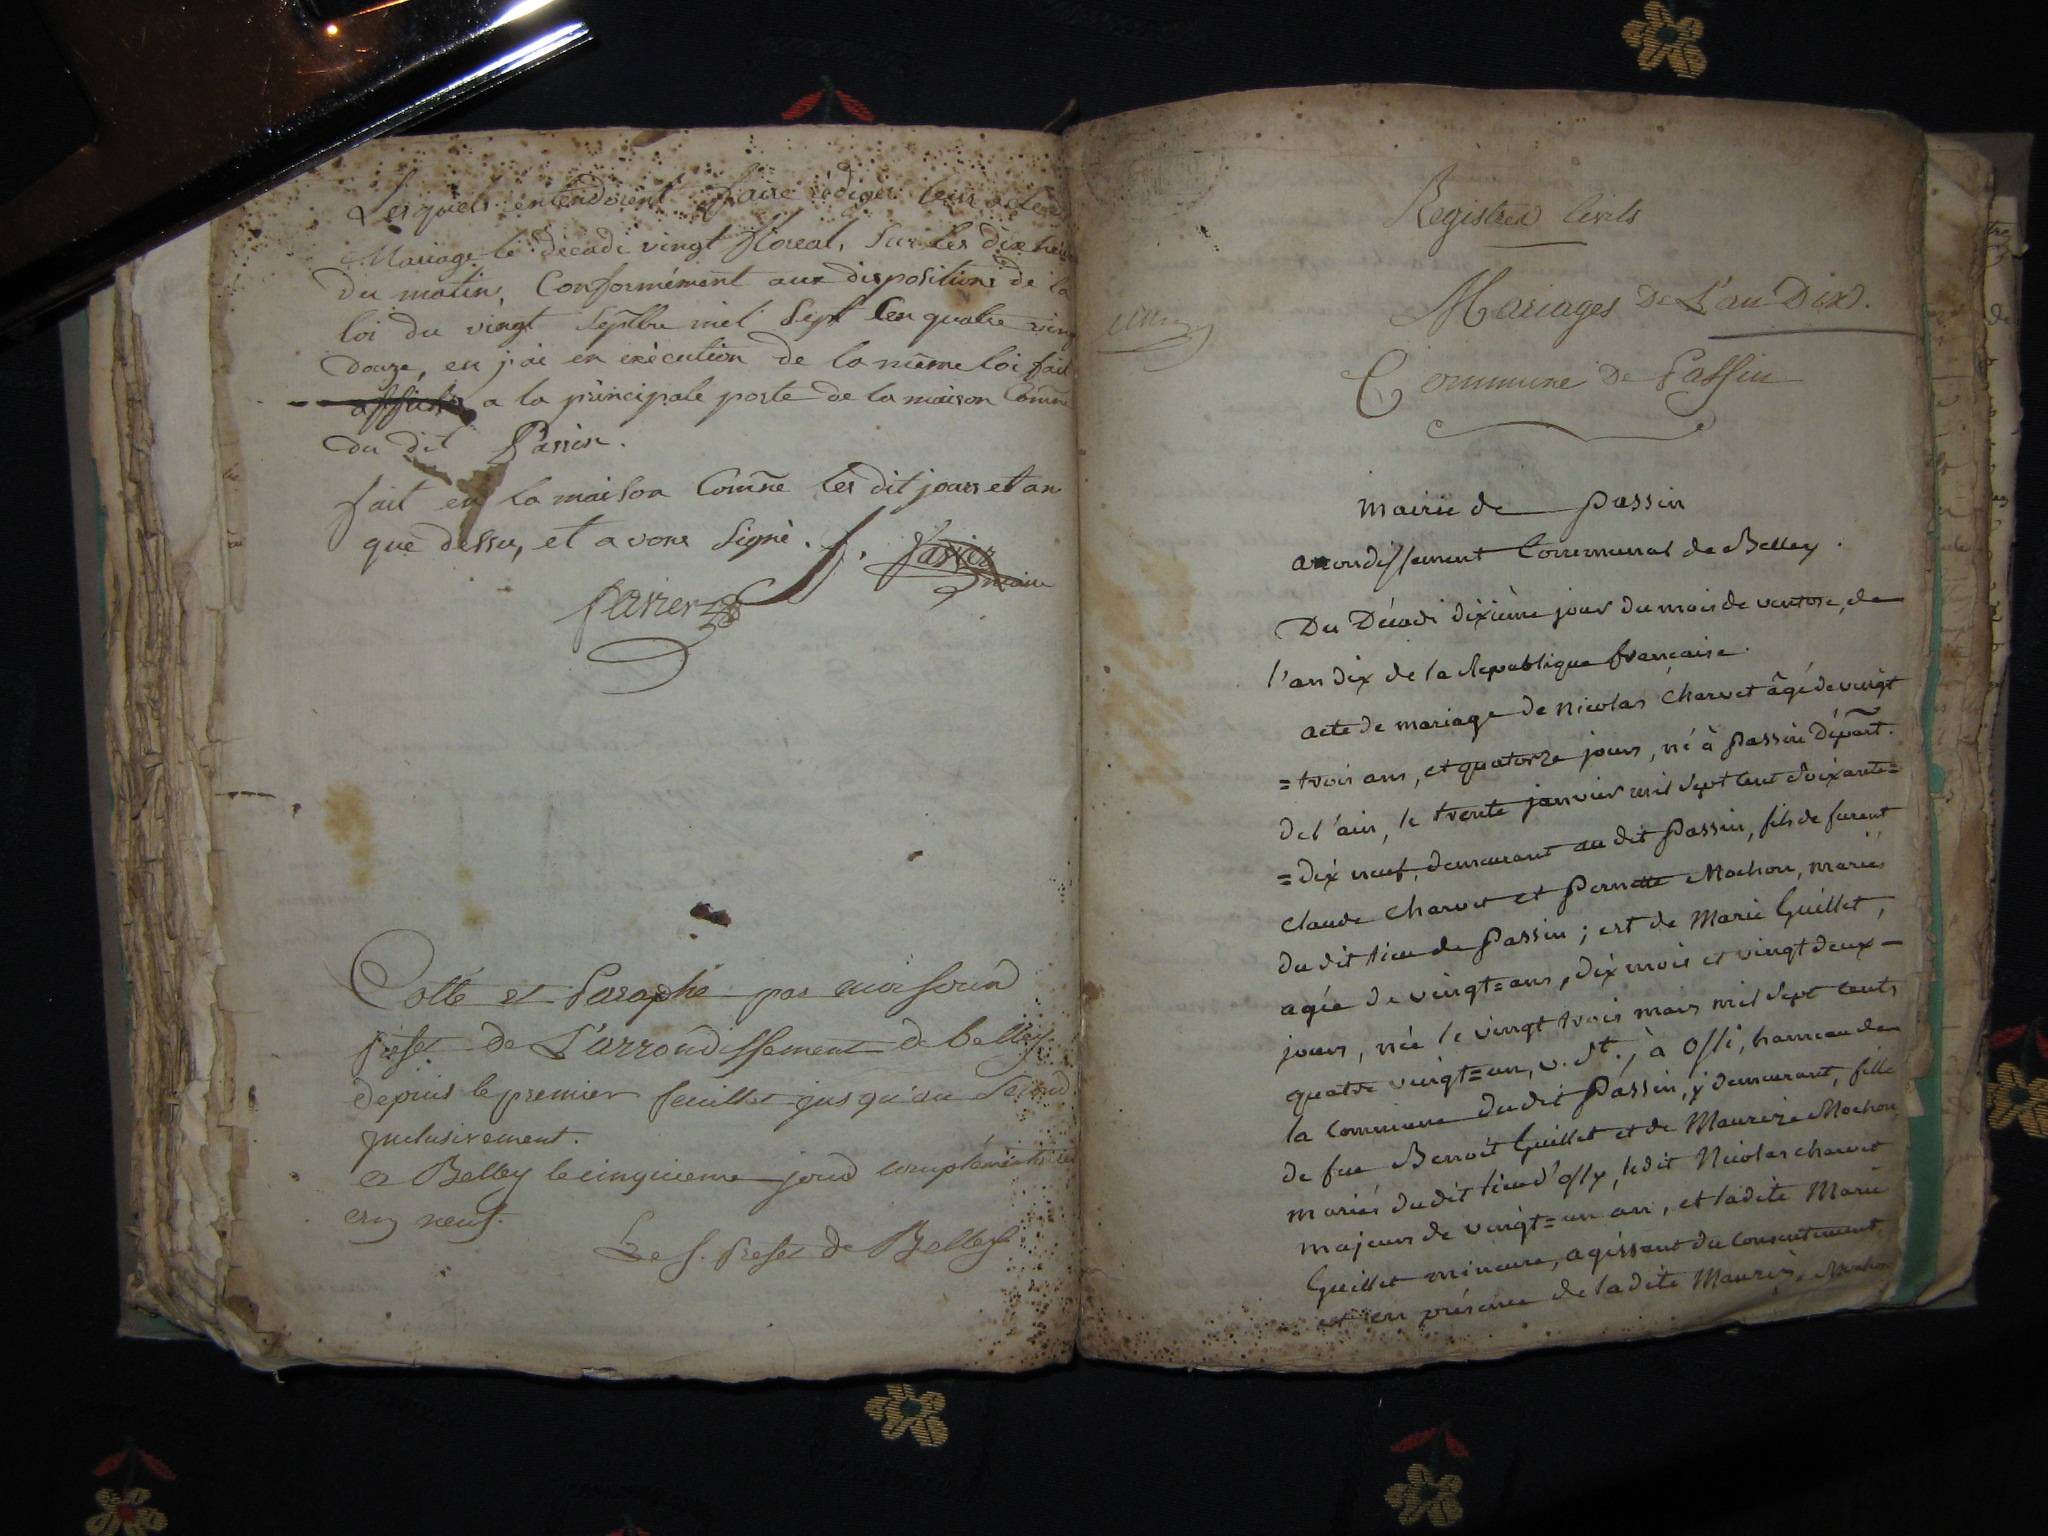 Lesquels entendoient faire rédiger leur acte
Mariage le décadi vingt floreal, sur les dix heu
du matin, Conformément aux dispositions de la
loi du vingt Septbre mil Sept Cen quatre ving
douze, en j'ai en exécution de la même loi fait
afficher a la principale porte de la maison Comñe
du dit Passin.
fait en la maison Comñe les dit jours et an
que dessu, et avons Signé.
mair
Cotté et Paraphé par
préfet de L'arrondissement de belley
depuis le premier feuillet jusqu'au Second
inclusivement.
a Belley le cinquieme jour complémentaire
neuf.
Le S. Prefet de Belley
Registres Civils
Mariages De L'an Dix.
Commune De Passin
Mairie de Passin
arrondissement Communal de Belley.
Du Décadi dixième jour du mois de ventose, de
l'an dix de la Republique française.
acte de mariage de nicolas Charvet âgé de vingt
=trois ans, et quatorze jours, né à Passin Départ.
de l'ain, le trente janvier mil Sept cent Soixante=
=dix neuf, demeurant au dit Passin, fils de furent
Claude Charvet et Pernette Mochon, mariés
du dit lieu de Passin; est de Marie Guillet,
agée de vingt=ans, dix mois et vingt deux
jours, née le vingt trois mars mil Sept cents
quatre vingt=un, v. St., à Ossi, hameau de
la Commune dudit Passin, y demeurant, fille
de feu Benoît Guillet et de Maurize Mochon
mariés dudit lieu d'ossy, ledit Nicolas charvet
majeur de vingt=un an, et ladite Marie
Guillet mineure, agissant du Consentement,
et en présence de ladite Maurize Mochon